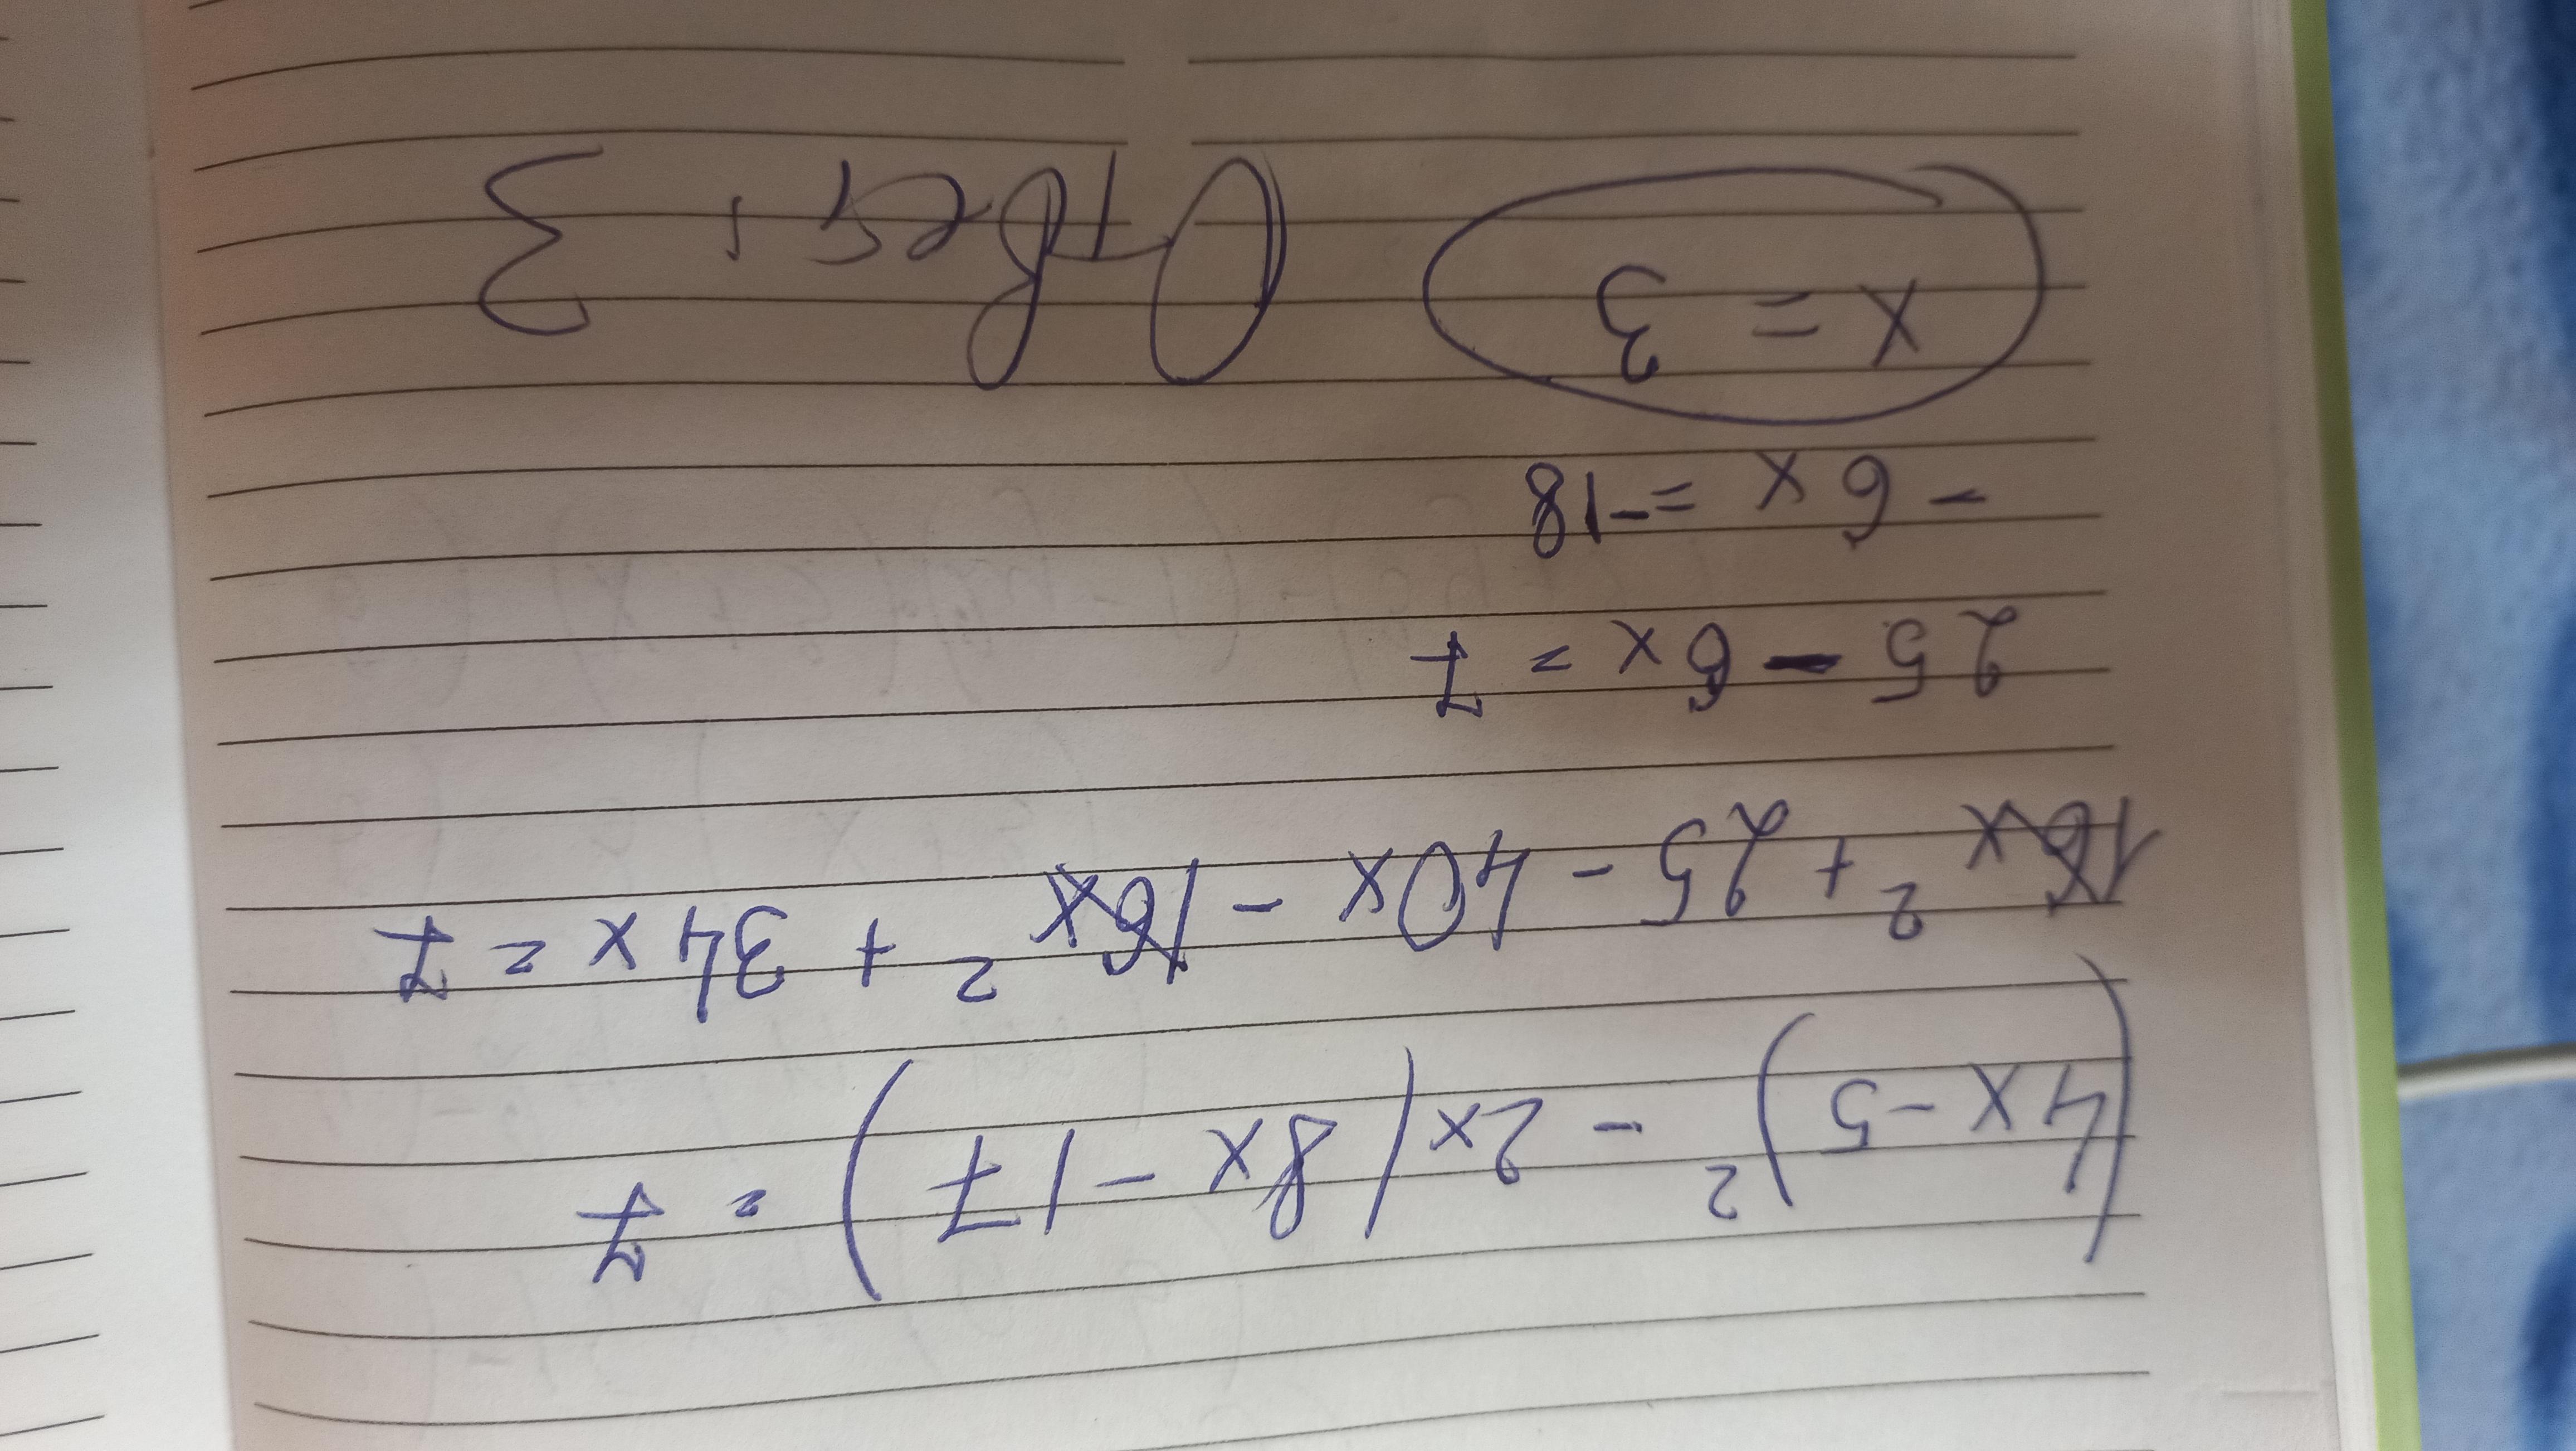 (4x-5)² - 2x(8x-17) = 7
16x² + 25 - 40x - 16x² + 34x = 7
25 - 6x = 7
- 6x = -18
x = 3 Ответ: 3